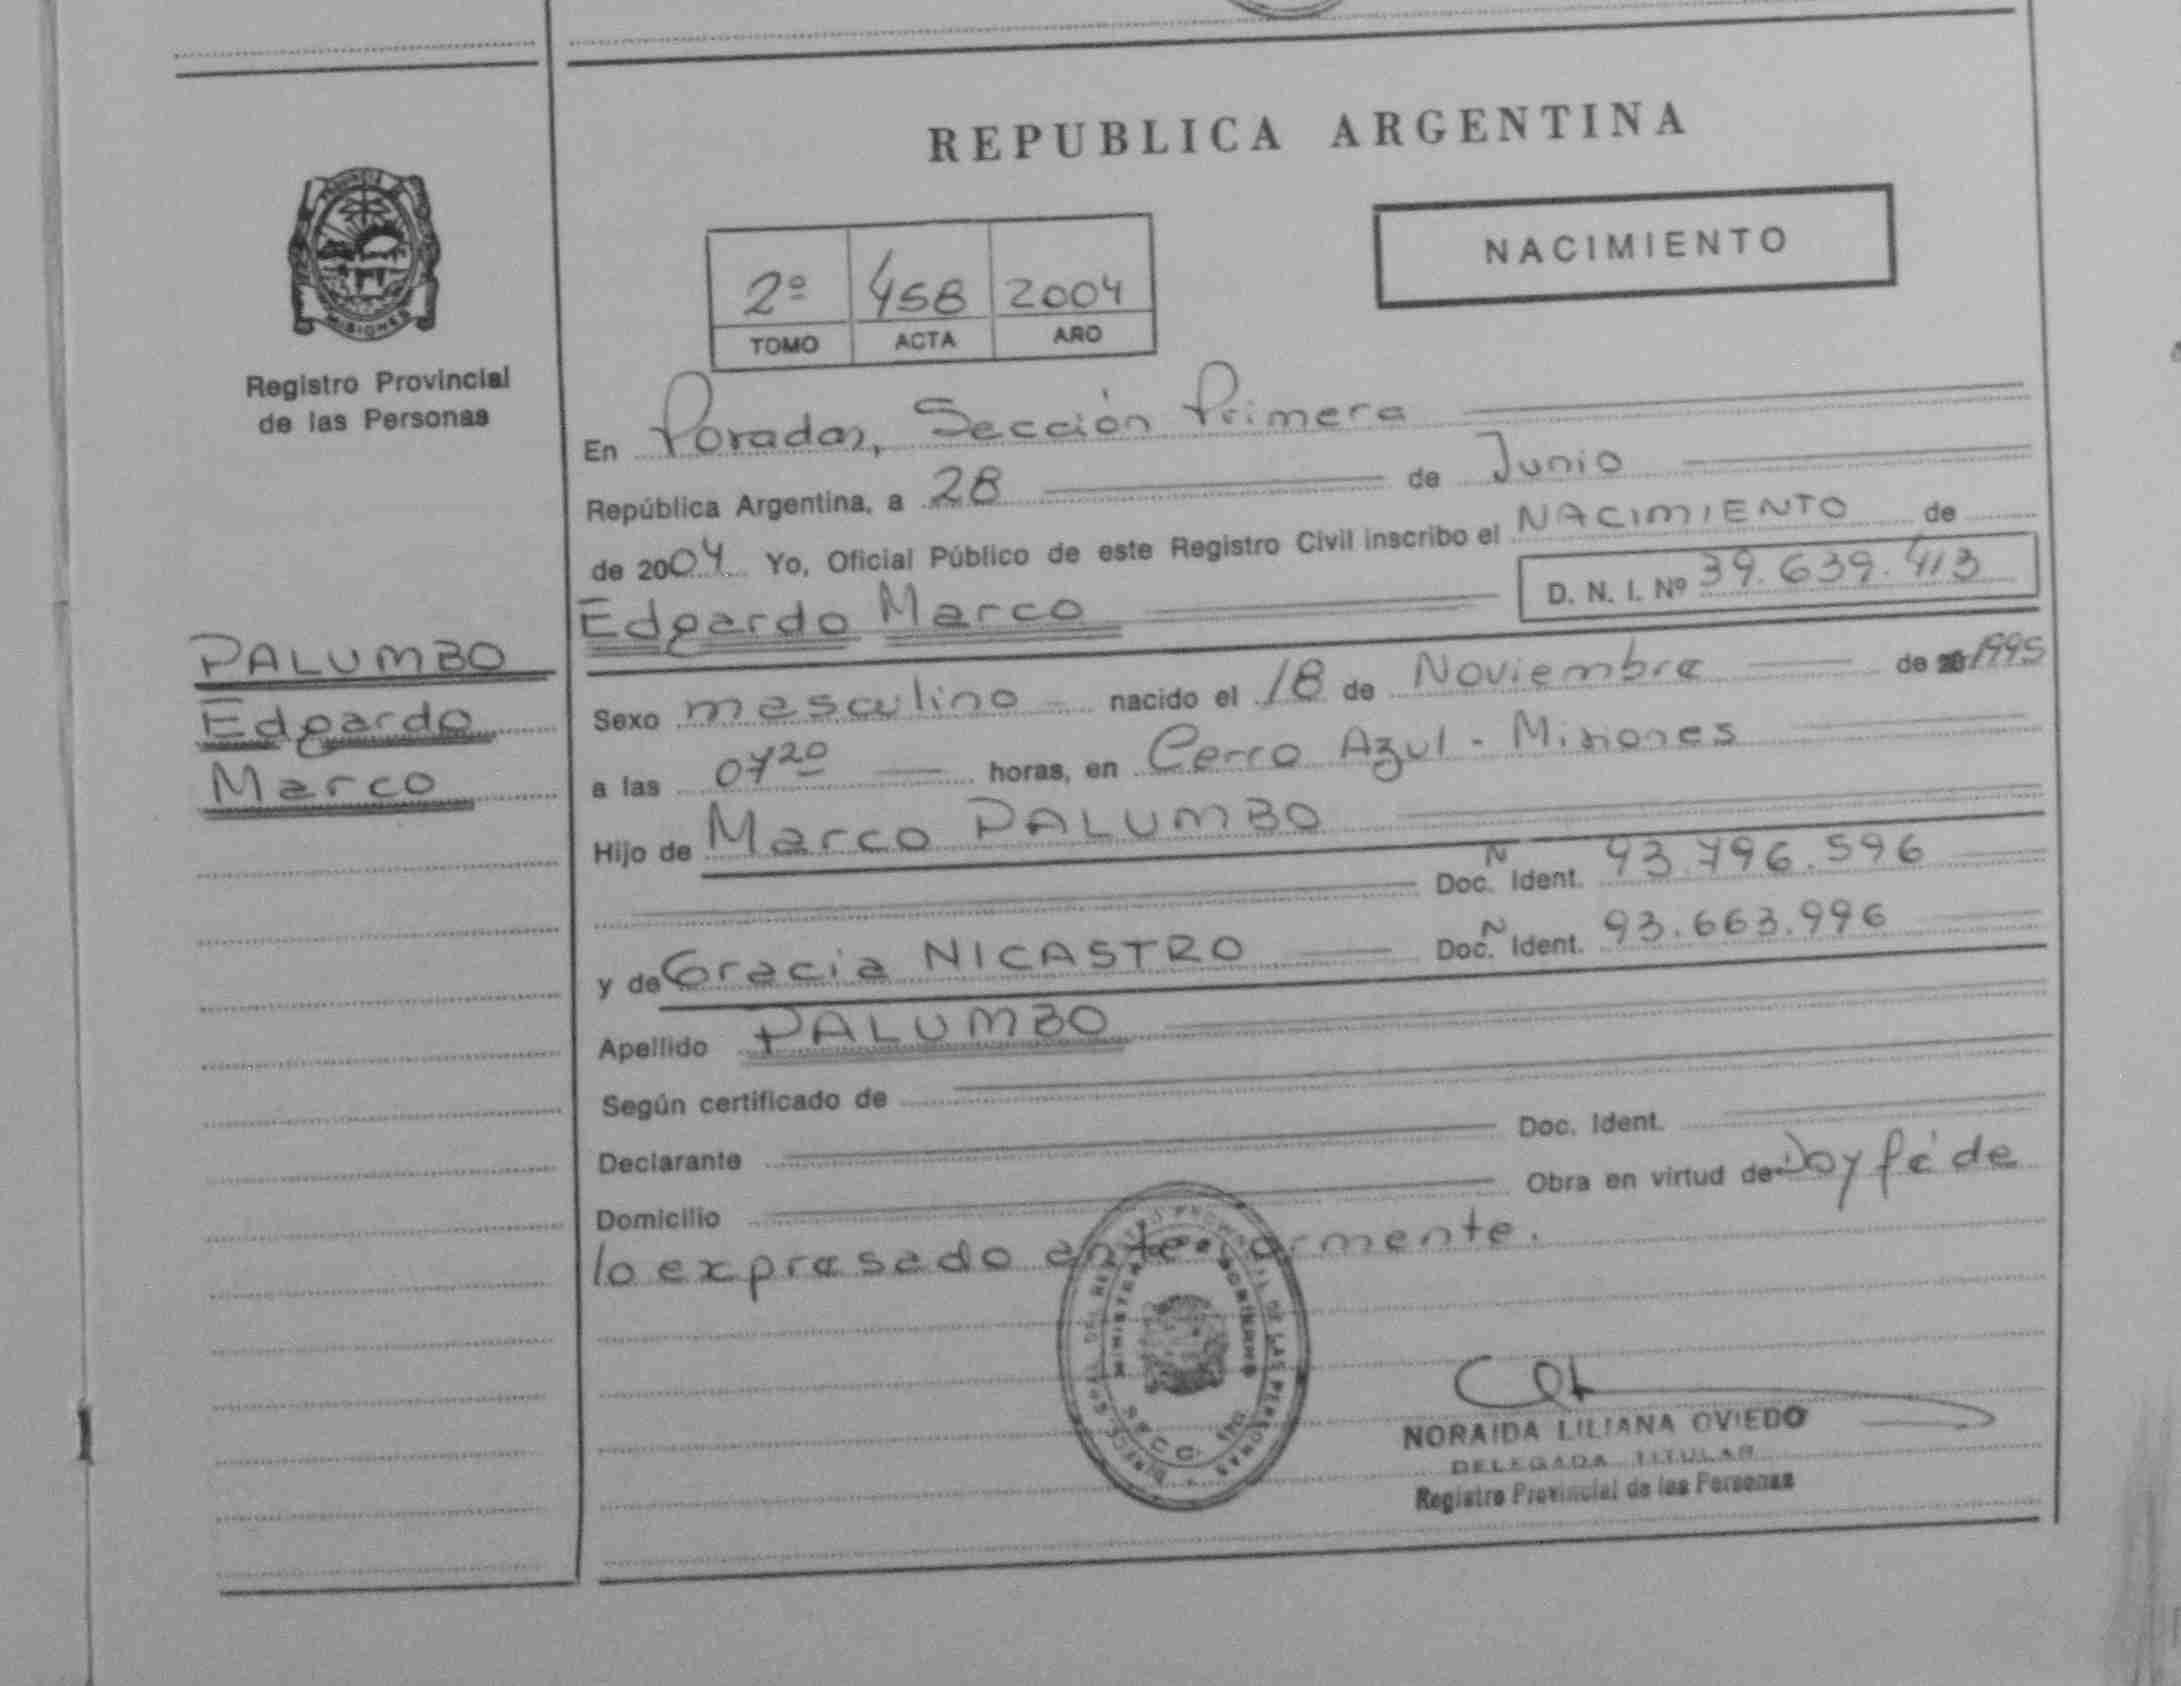 REPUBLICA ARGENTINA
NACIMIENTO
2º 458 2004
TOMO ACTA AÑO
MISIONES
Registro Provincial
de las Personas
En Posadas, Sección Primera
República Argentina, a 28 de Junio
de 2004 Yo, Oficial Público de este Registro Civil inscribo el NACIMIENTO de
Edgardo Marco D. N. I. Nº 39.639.413
PALUMBO
Edgardo
Marco
Sexo masculino nacido el 18 de Noviembre de 1995
a las 0720 horas, en Cerro Azul - Misiones
Hijo de Marco PALUMBO
Doc. N Ident. 93.796.596
y de Gracia NICASTRO Doc. N Ident. 93.663.996
Apellido PALUMBO
Según certificado de
Declarante Doc. Ident.
Domicilio Obra en virtud de Doy fé de
lo expresado anteriormente.
NORAIDA LILIANA OVIEDO
DELEGADA TITULAR
Registro Provincial de las Personas